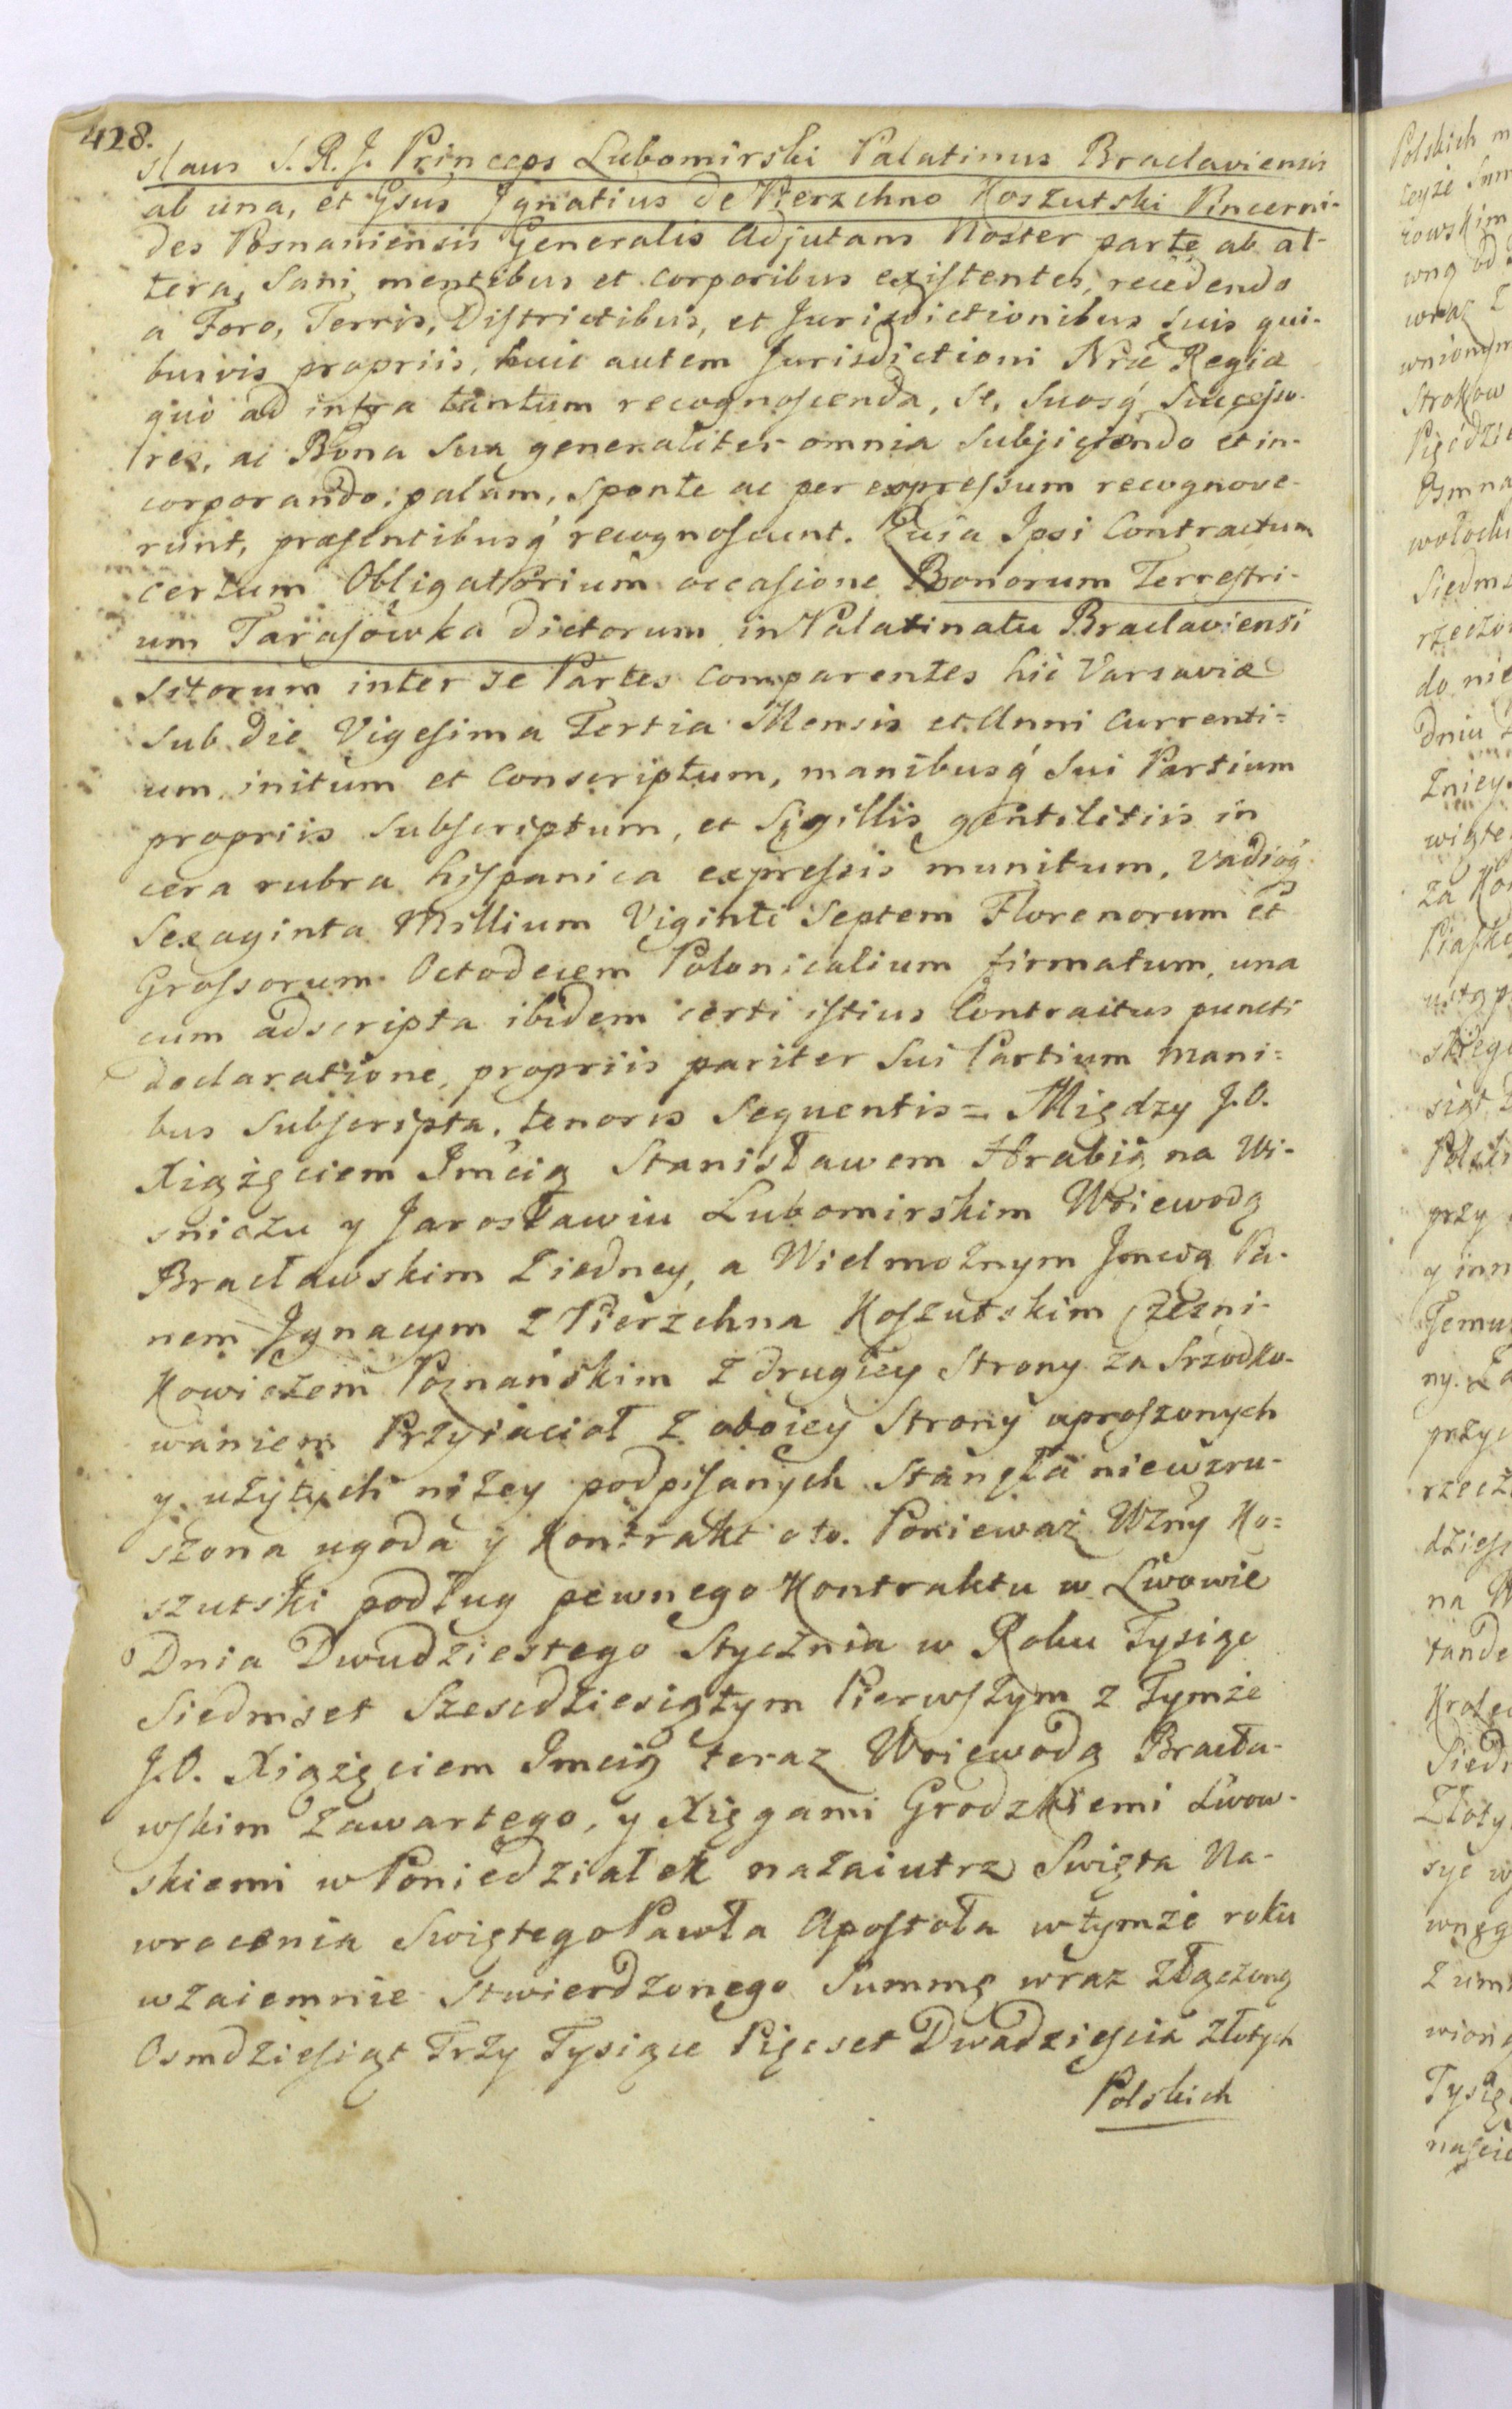 428.
slaus S. R. J. Princeps Lubomirski Palatinus Braclaviensis
ab una, et Gsus Jgnatius de Pierzchno Koszutski Pincerni-
des Posnaniensis Generalis Adjutans Noster parte ab al-
tera, Sani mentibus et corporibus existentes, recedendo
a Foro, Terris, Districtibus, et Jurisdictionibus Suis qui-
busvis propriis, huic autem Jurisdictioni Nrae Regiae
quò ad infra tantum recognoscenda, se, Suosq́ Successo-
res, ac Bona Sua generaliter omnia Subjiciendo et in-
corporando; palam, sponte ac per expressum recognove-
runt, praesentibusq́ recognoscunt. Quia Ipsi Contractum
certum Obligatorium occasione Bonorum Terrestri-
um Tarasowka dictorum in Palatinatu Braclaviensi
Sitorum inter se Partes Comparentes hic Varsaviae
sub die Vigesima Tertia Mensis et Anni Currenti=
um initum et Conscriptum, manibusq́ Sui Partium
propriis subscriptum, et Sigillis gentilitiis in
cera rubra hispanica expressis munitum, Vadioq́
Sexaginta Millium Viginti Septem Florenorum et
Grossorum Octodecem Polonicalium firmatum, una
cum adscripta ibidem certi istius Contractus puncti
declaratione, propriis pariter Sui Partium mani=
bus Subscripta, tenoris Sequentis = Między J. O.
Xiążęciem Jmcią Stanisławem Hrabią na Wi-
sniczu y Jarosławiu Lubomirskim Woiewodą
Bracławskim z iedney, a Wielmożnym Jmcią Pa-
nem Jgnacym z Pierzchna Koszutskim Czesni-
kowiczem Poznańskim z drugiey Strony za Srzodko-
waniem Przyiacioł z oboiey Strony uproszonych
y użytych niżey podpisanych Stanęła niewzru-
szona ugoda y Kontrakt o to. Poniewaz Wżny Ko=
szutski podług pewnego Kontraktu w Lwowie
Dnia Dwudziestego Stycznia w Roku Tysiąc
Siedmset Szescdziesiątym Pierwszym z Tymże
J. O. Xiążęciem Jmcią teraz Woiewodą Bracła-
wskim zawartego, y Xięgami Grodzkiemi Lwow-
skiemi w Poniedziałek nazaiutrz Swięta Na-
wrocenia Swiętego Pawła Apostoła w tymże roku
wzaiemnie Stwierdzonego Summę wraz złączoną
Osmdziesiąt Trzy Tysiące Pięcset Dwadziescia Złotych
Polskich